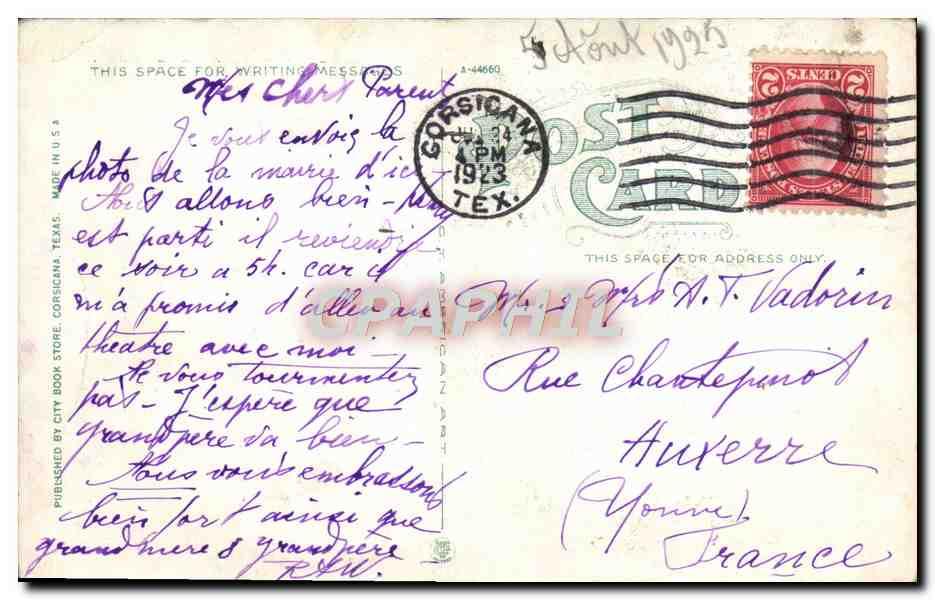 5 Août 1923
THIS SPACE FOR WRITING MESSAGES
A-44660
POST CARD
CORSICANA
24
4 PM
1923
TEX.
2 CENTS 2
THIS SPACE FOR ADDRESS ONLY.
MADE IN U.S.A
PUBLISHED BY CITY BOOK STORE, CORSICANA, TEXAS.
AMERICAN ART
Mes Chers Parent
Je vous envois la
photo de la mairie d'ici -
Nous allons bien -
est parti il reviendra
ce soir a 5h. car il
m'a promis d'aller au
theatre avec moi -
Ne vous tourmentez
pas - J'espère que
grandpère va bien -
Nous vous embrassons
bien fort ainsi que
grandmere & grandpère
Mr. & Mrs A. T. Vadorin
Rue Chantepinot
Auxerre
(Yonne)
France
CPAPHIL